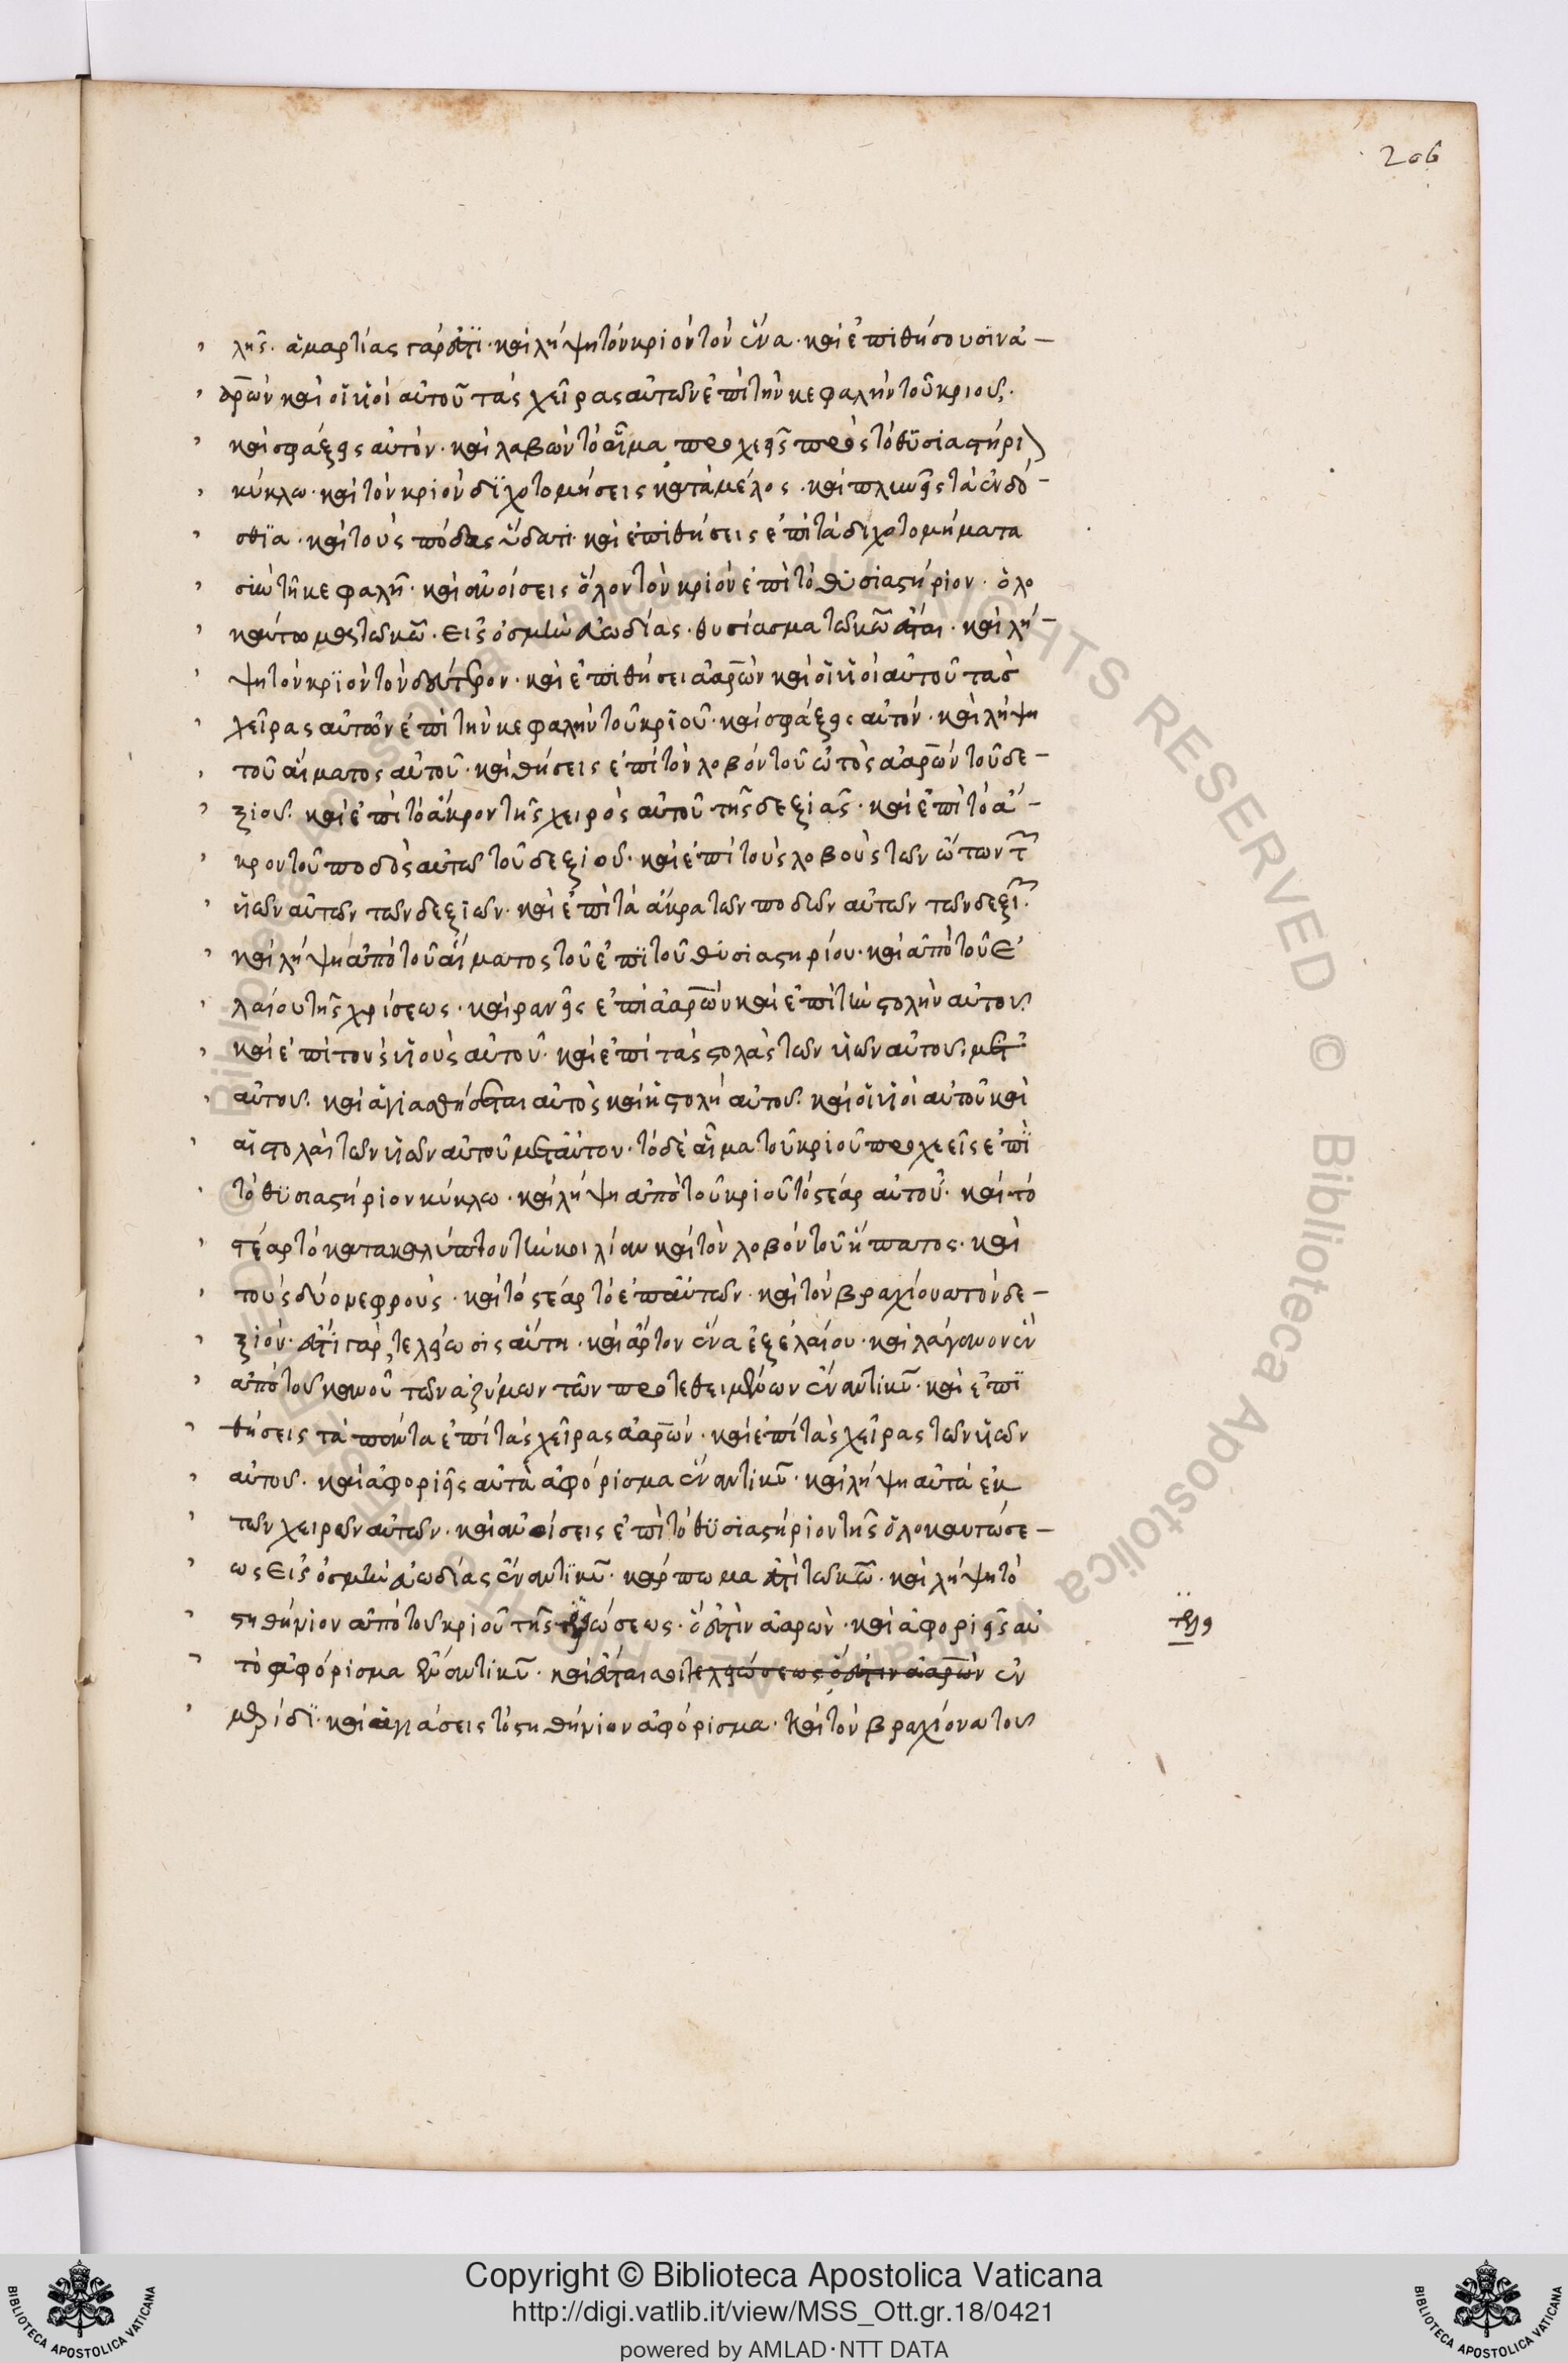 206
λῆς. ἁμαρτίας γάρ ἐστϊ· καὶ λήψῃ τὸν κριὸν τὸν ἕνα· καὶ ἐπιθήσουσϊν ἀ-
αρῶν καὶ οἱ υἱοὶ αὐτοῦ τὰς χεῖρας αὐτῶν ἐπὶ τὴν κεφαλὴν τοῦ κριοῦ.
καὶ σφάξεις αὐτόν· καὶ λαβὼν τὸ αἷμα προσχεεῖς πρὸς τὸ θϋσιαστήρι
κύκλω· καὶ τὸν κριὸν δϊχοτομήσεις κατὰ μέλος· καὶ πλυνεῖς τὰ ἐνδό-
σθϊα· καὶ τοὺς πόδας ὕδατι· καὶ ἐπιθήσεις ἐπὶ τὰ διχοτομήματα
σὺν τῇ κεφαλῇ· καὶ ἀνοίσεις ὅλον τὸν κριὸν ἐπὶ τὸ θυσιαστήριον· ὁλο
καύτωμα τῶ κω̅· εἰς ὀσμὴν εὐωδίας· θυσίασμα τῶ κω̅ ἐστι· καὶ λή-
ψῃ τὸν κρϊὸν τὸν δεύτερον· καὶ ἐπιθήσει ἀαρὼν καὶ οἱ υἱοὶ αὐτοῦ τὰς
χεῖρας αὐτῶν ἐπὶ τὴν κεφαλὴν τοῦ κριοῦ· καὶ σφάξεις αὐτόν· καὶ λήψη
τοῦ αἵματος αὐτοῦ· καὶ θήσεις ἐπὶ τὸν λοβὸν τοῦ ὠτὸς ἀαρὼν τοῦ δε-
ξιοῦ· καὶ ἐπὶ τὸ ἄκρον τῆς χειρὸς αὐτοῦ τῆς δεξιᾶς· καὶ ἐπὶ τὸ ἄ-
κρον τοῦ ποδὸς αὐτοῦ τοῦ δεξιοῦ· καὶ ἐπὶ τοὺς λοβοὺς τῶν ὤτων τῶν
υἱῶν αὐτῶν τῶν δεξιῶν· καὶ ἐπὶ τὰ ἄκρα τῶν ποδῶν αὐτῶν τῶν δεξιῶν·
καὶ λήψη ἀπὸ τοῦ αἵματος τοῦ ἐπϊ τοῦ θυσιαστηρίου· καὶ ἀπὸ τοῦ ἐ
λαίου τῆς χρίσεως· καὶ ρανεῖς ἐπὶ ἀαρὼν καὶ ἐπὶ τὴν στολὴν αὐτοῦ·
καὶ ἐπὶ τοὺς υἱοὺς αὐτοῦ· καὶ ἐπὶ τὰς στολὰς τῶν υἱῶν αὐτοῦ· μετ'
αὐτοῦ· καὶ ἁγιασθήσεται αὐτὸς καὶ ἡ στολὴ αὐτοῦ· καὶ οἱ υἱοὶ αὐτοῦ καὶ
αἱ στολαὶ τῶν υἱῶν αὐτοῦ μετ' αὐτοῦ· τὸ δὲ αἷμα τοῦ κριοῦ προσχεεῖς ἐπϊ
τὸ θϋσιαστήριον κύκλω· καὶ λήψη ἀπὸ τοῦ κριοῦ τὸ στέαρ αὐτοῦ· καὶ τὸ
στέαρ τὸ κατακαλύπτον τὴν κοιλίαν καὶ τὸν λοβὸν τοῦ ἥπατος· καὶ
τοὺς δύο νεφρούς· καὶ τὸ στέαρ τὸ ἐπ' αὐτῶν· καὶ τὸν βραχίονα τὸν δε-
ξιόν· ἔστι γὰρ τελείωσις αὕτη· καὶ ἄρτον ἕνα ἐξ ἐλαίου· καὶ λάγανον ἓν
ἀπὸ τοῦ κανοῦ τῶν ἀζύμων τῶν προτεθειμένων ἔναντι κυ̅· καὶ ἐπϊ
θήσεις τὰ πάντα ἐπὶ τὰς χεῖρας ἀαρών· καὶ ἐπὶ τὰς χεῖρας τῶν υἱῶν
αὐτοῦ· καὶ ἀφοριεῖς αὐτὰ ἀφόρισμα ἔναντι κυ̅· καὶ λήψη αὐτὰ ἐκ
τῶν χειρῶν αὐτῶν· καὶ ἀνοίσεις ἐπὶ τὸ θϋσιαστήριον τῆς ὁλοκαυτώσε-
ως εἰς ὀσμὴν εὐωδίας ἔναντϊ κυ̅· κάρπωμα ἐστὶ τῶ κω̅· καὶ λήψη τὸ
στηθύνιον ἀπὸ τοῦ κριοῦ τῆς τελειώσεως· ὅ ἐστὶν ἀαρών· καὶ ἀφοριεῖς αὐ
τελει
τὸ ἀφόρισμα ἔναντι κυ̅· καὶ ἔσται σοι τελειώσεως ὅ ἐστιν ἀαρὼν ἐν
μερίδϊ· καὶ ἁγιάσεις τὸ στηθύνιον ἀφόρισμα· καὶ τὸν βραχίονα τοῦ
Copyright © Biblioteca Apostolica Vaticana
http://digi.vatlib.it/view/MSS_Ott.gr.18/0421
powered by AMLAD·NTT DATA
BIBLIOTECA APOSTOLICA VATICANA
BIBLIOTECA APOSTOLICA VATICANA